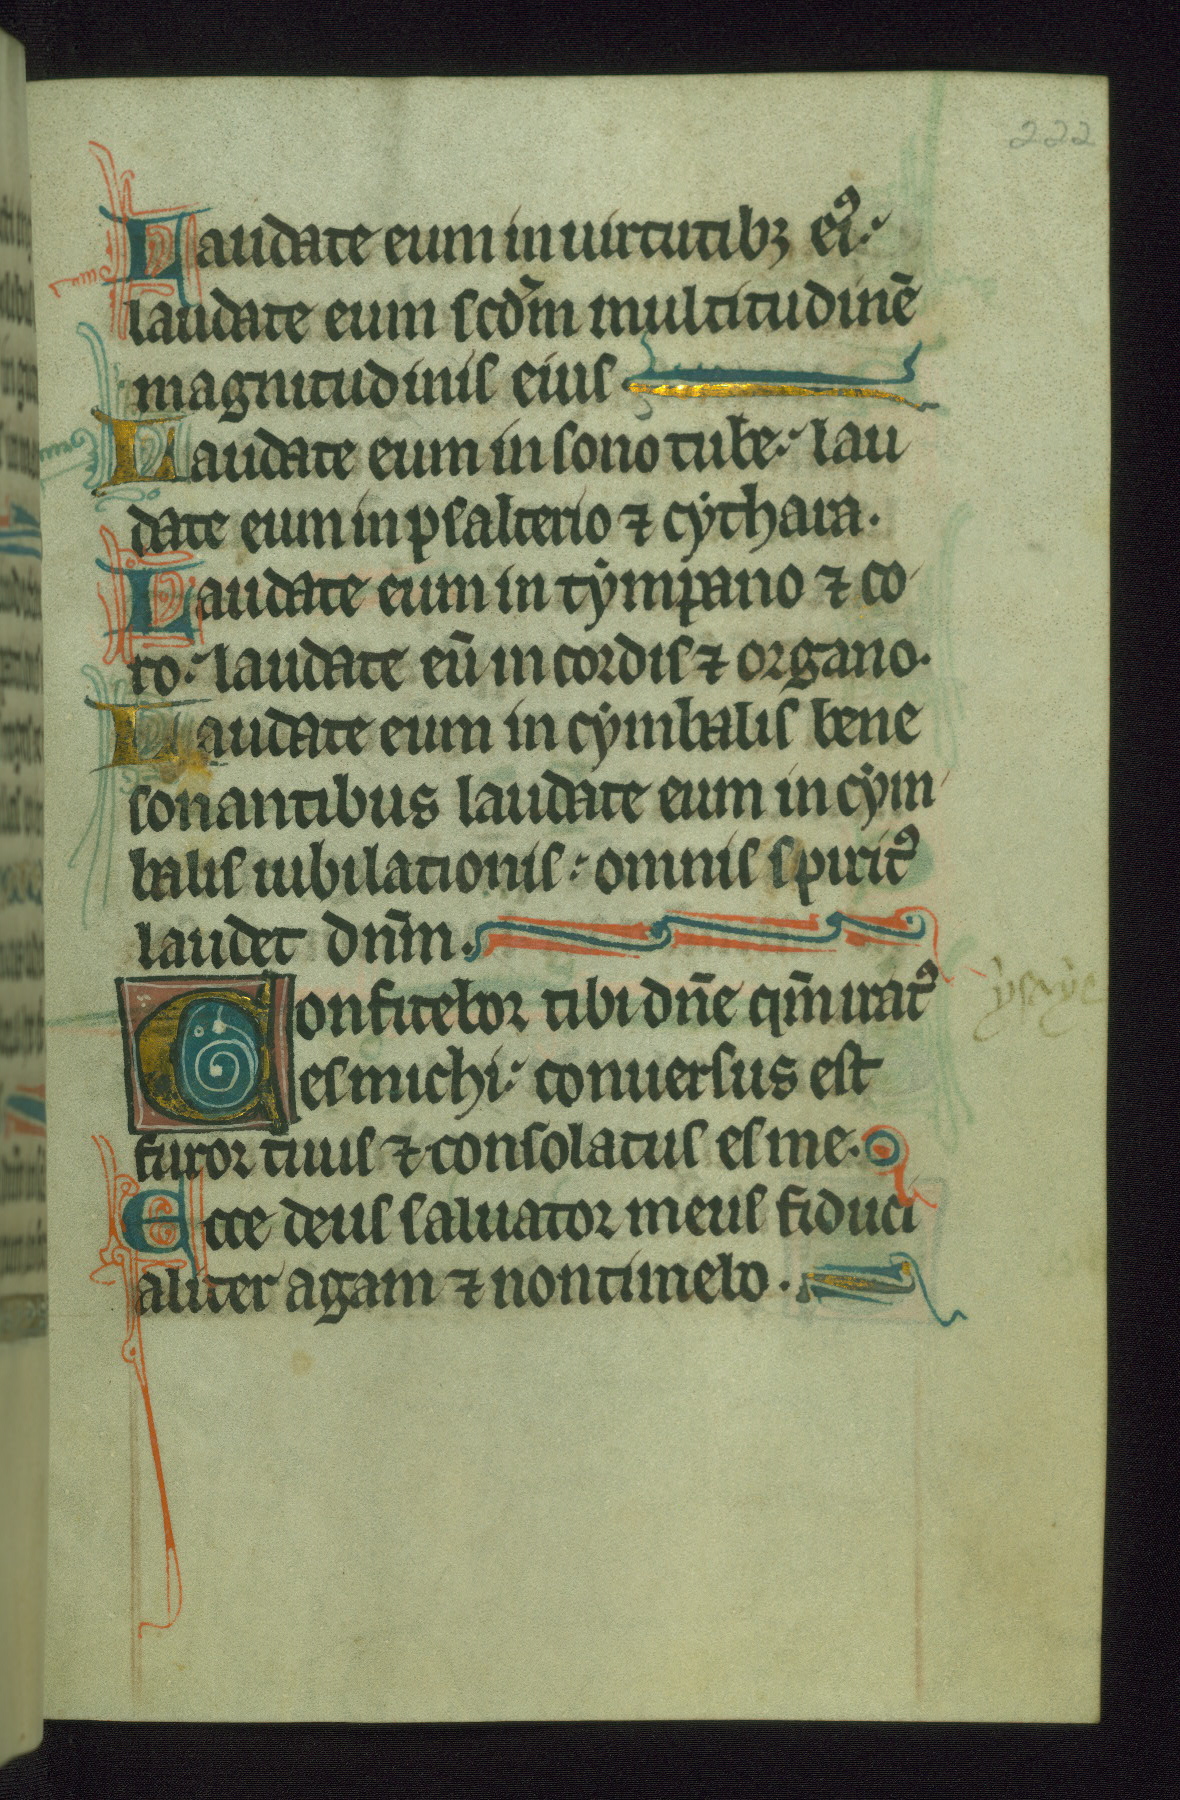 222
Laudate eum in uirtutibꝫ ei᷒
laudate eum scd̄m multitudinē
magnitudinis eius
Laudate eum in sono tube. lau
date eum in psalterio ⁊ cythara.
Laudate eum in tympano ⁊ co
ro. laudate eū in cordis ⁊ organo.
Laudate eum in cymbalis bene
sonantibus laudate eum in cym
balis iubilationis. omnis spirit᷒
laudet dn̄m.
Confitebor tibi dn̄e qm̄ irat᷒
es michi. conuersus est
furor tuus ⁊ consolatus es me.
Ecce deus saluator meus fiduci
aliter agam ⁊ non timebo.